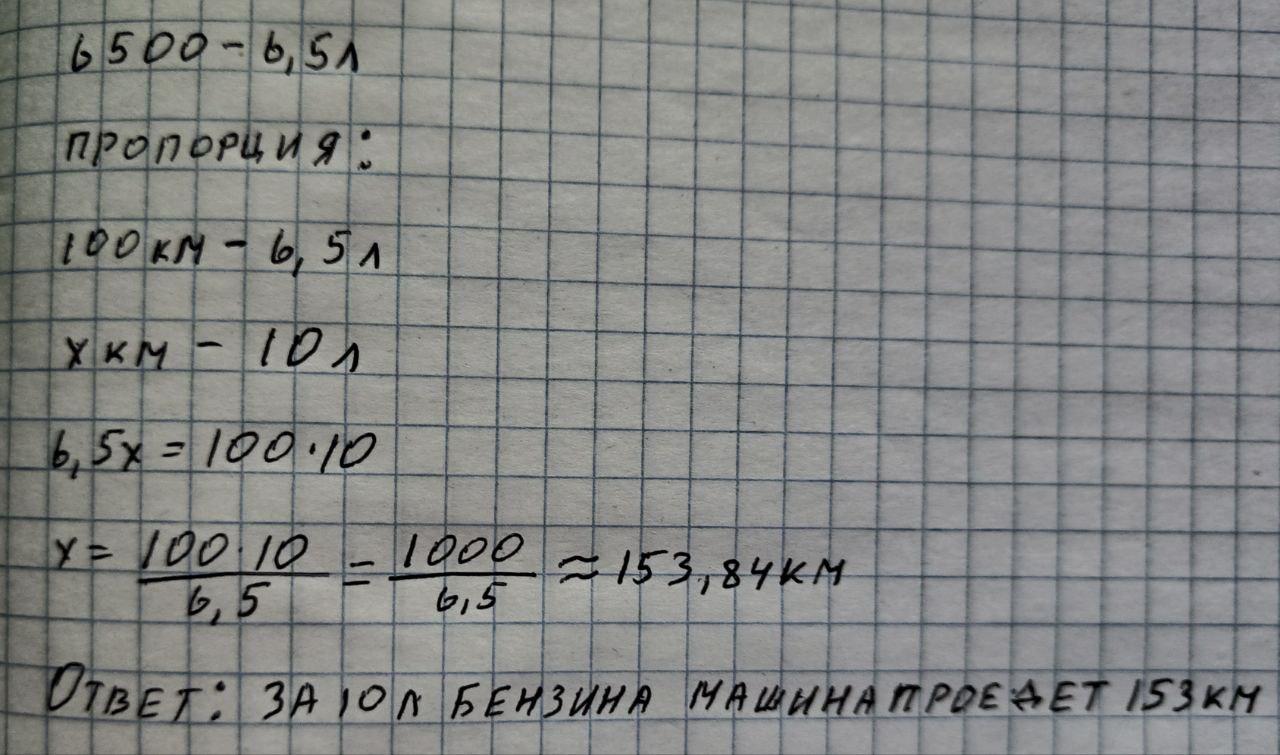 6500 - 6,5л
ПРОПОРЦИЯ:
100 км - 6,5 л
x км - 10 л
6,5x = 100·10
x = 100·10/6,5 = 1000/6,5 ≈ 153,84 км
ОТВЕТ: ЗА 10 Л БЕНЗИНА МАШИНА ПРОЕДЕТ 153 КМ